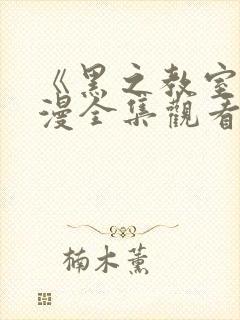 《黑之教室
漫全集觀看
楠木薰